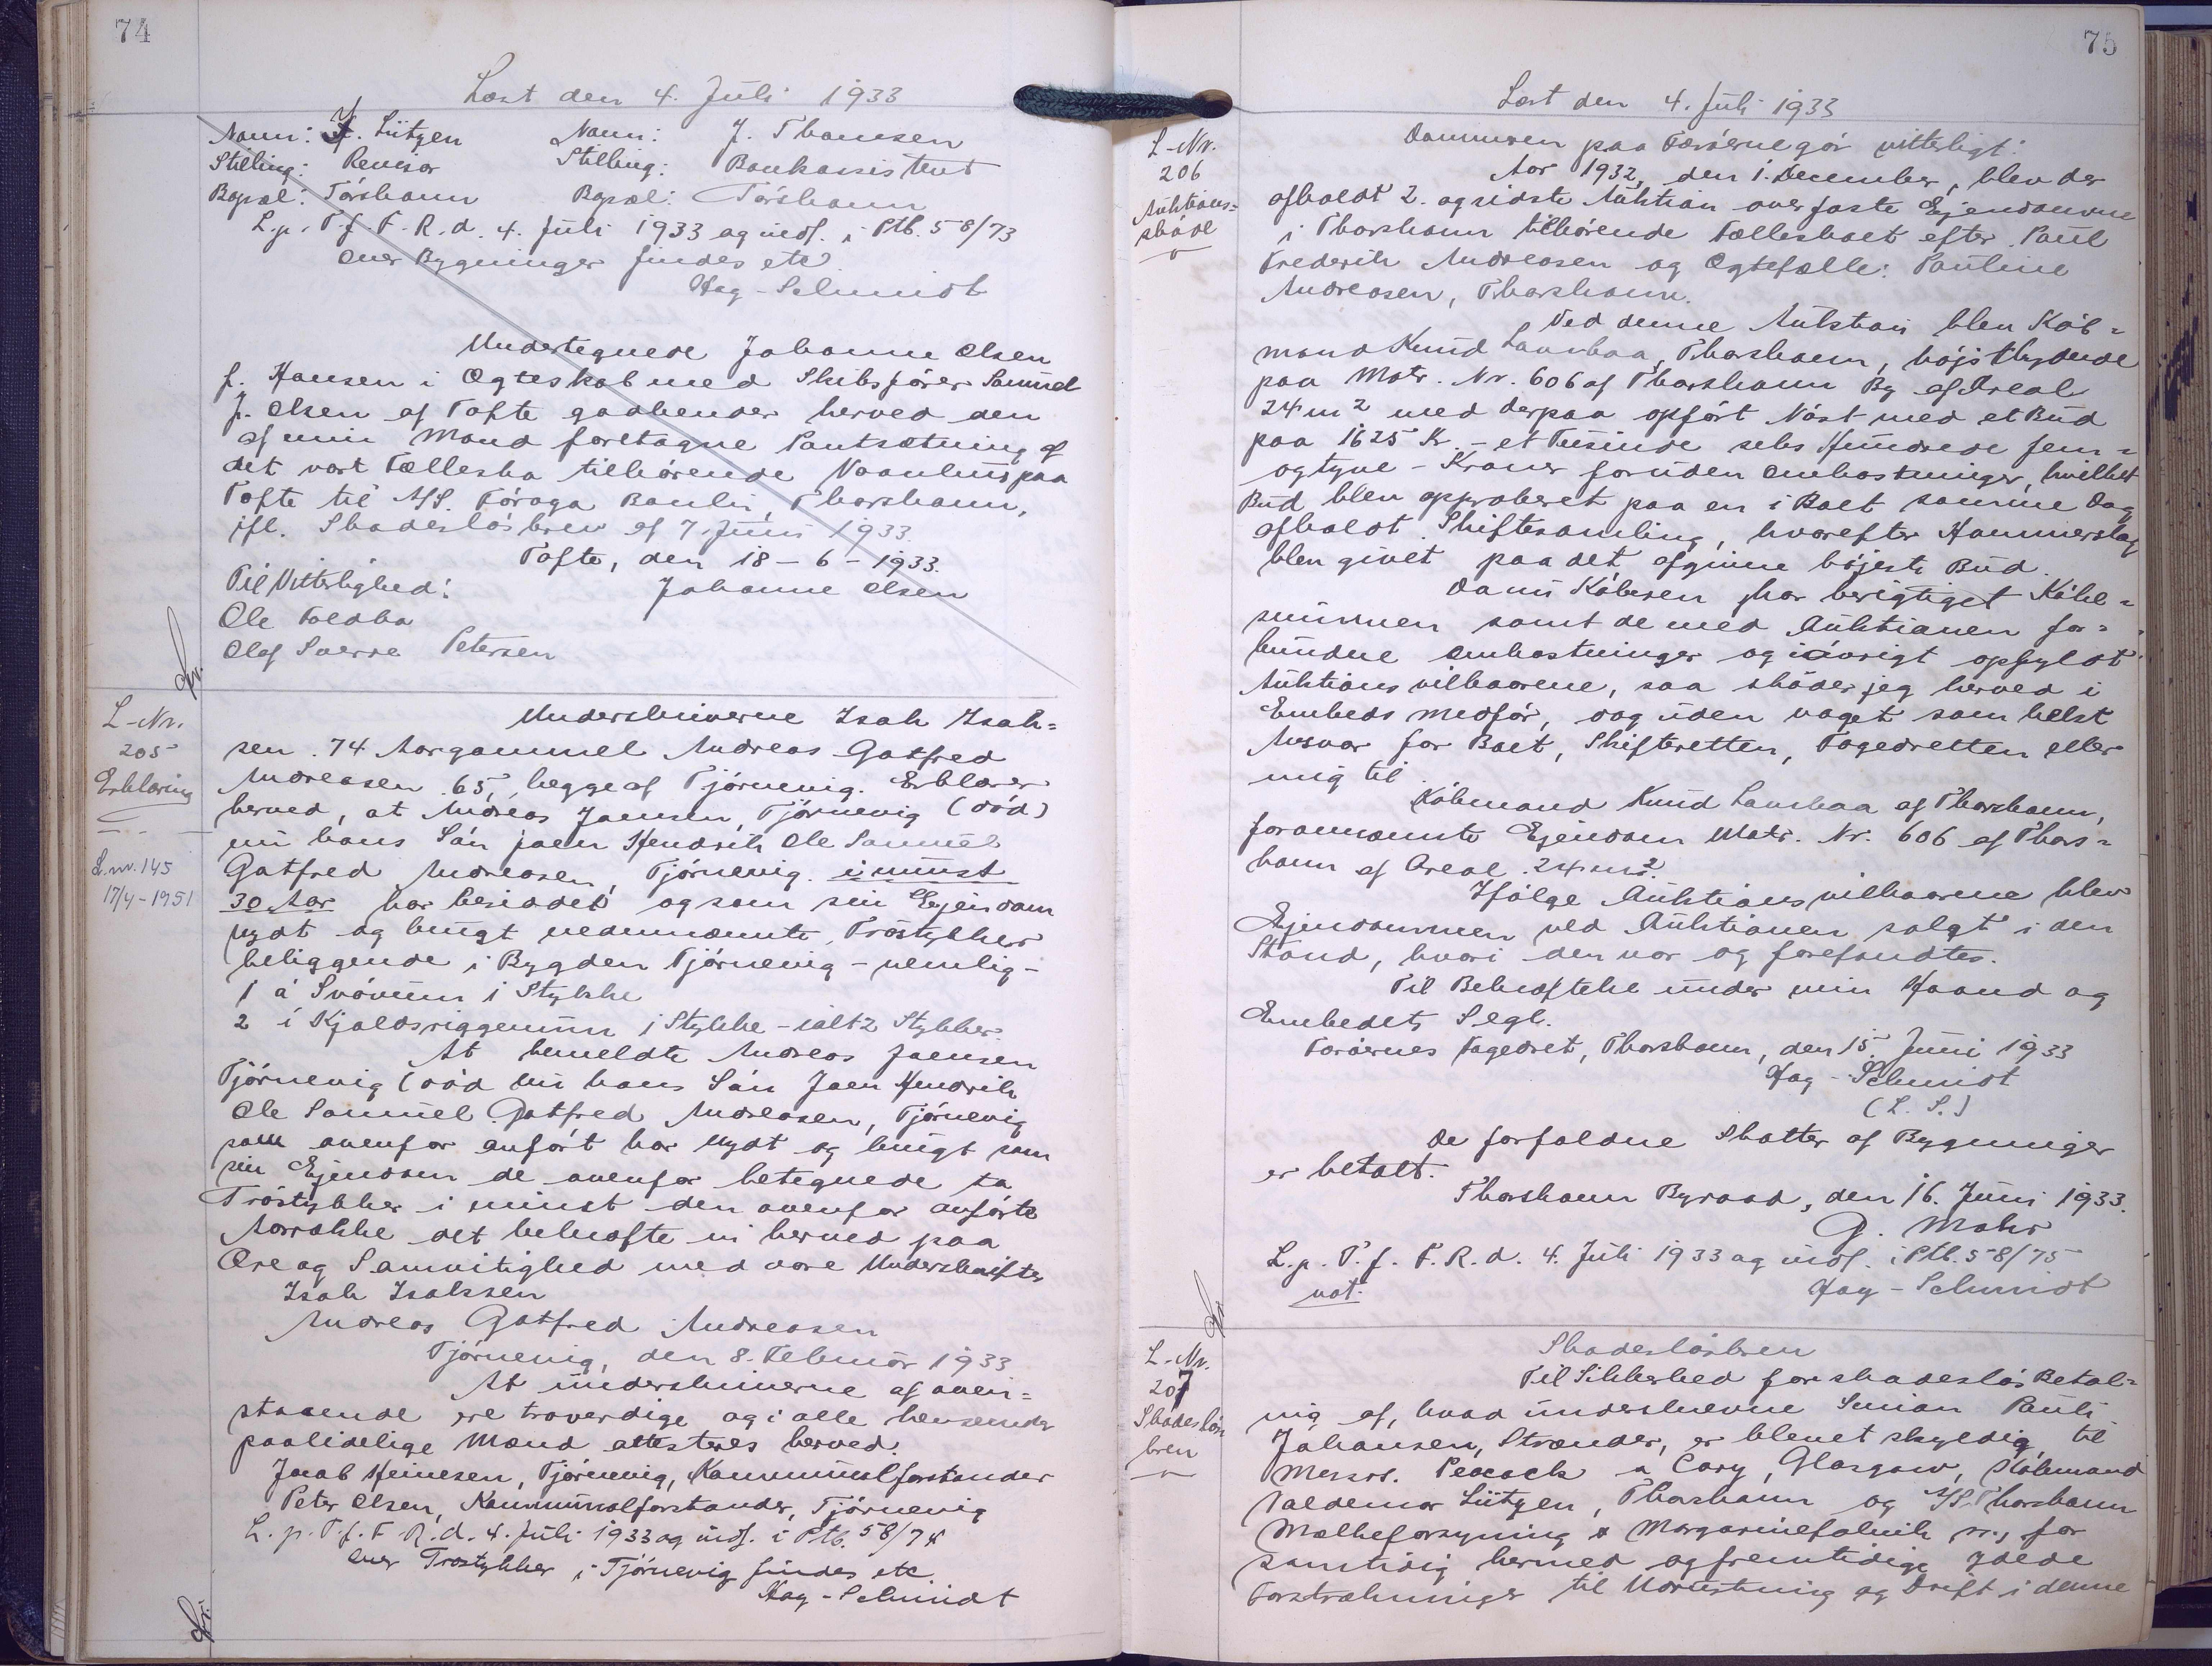 74
Læst den 4. Juli 1933
Navn: J. Lützen Navn: J. Thomsen
Stilling: Revisor Stilling: Bankassistent
Bopæl: Tórshavn Bopæl: Tórshavn
L.p. T.f.F.R.d. 4. Juli 1933 og indf. i Ptb. 58/73
Over Bygninger findes etc
Hag-Schmidt
Undertegnede Johanne Olsen
f. Hansen i Ægteskab med Skibsfører Samuel
J. Olsen af Tofte godkender herved den
af min Mand foretagne Pantsætning af
det vort Fællesbo tilhørende Vaanhus paa
Tofte til A/S. Föroya Banki, Thorshavn,
jfl. Skadesløsbrev af 7. Juni 1933.
Tofte, den 18-6-1933.
Til Vitterlighed: Johanne Olsen
Ole Toldba
Olaf Sverre Petersen
L-Nr.
205
Erklæring
L.nr. 145
17/4-1951
Underskriverne Isak Isak=
sen 74 Aar gammel Andreas Gotfred
Andreasen 65, begge af Tjørnevig. Erklærer
herved, at Andreas Joensen, Tjørnevig (død)
nu hans Søn Joen Hendrik Ole Samuel
Gotfred Andreasen, Tjørnevig i minst
30 Aar har besiddet og som sin Ejendom
nydt og brugt nedennævnte Trøstykker
beliggende i Bygden Tjørnevig - nemlig -
1 á Svóvunn 1 Stykke
2 i Kjaldsriggenum 1 Stykke - ialt 2 Stykker.
At bemeldte Andreas Joensen
Tjørnevig (død nu hans Søn Joen Hendrik
Ole Samuel Gotfred Andreasen, Tjørnevig
som ovenfor anført har nydt og brugt som
sin Ejendom de ovenfor betegnede to
Trøstykker i minst den ovenfor anførte
Aarrække det bekræfte vi herved paa
Ære og Samvitighed med vore Underskrifter
Isak Isaksen
Andreas Gotfred Andreasen
Tjørnevig, den 8. Februar 1933
At underskriverne af oven=
staaende ere troverdige og i alle henseender
paalidelige Mænd attesteres herved.
Jacob Heinesen, Tjørnevig, Kommunalforstander
Peter Olsen, Kommunalforstander, Tjørnevig
L.p.T.f.F.R.d. 4. Juli 1933 og indf. i Ptb. 58/74
Over Trøstykker i Tjørnevig findes etc
Hag-Schmidt
75
Læst den 4. Juli 1933
L-Nr.
206
Auktions=
skøde
Dommeren paa Færøerne gør vitterligt:
Aar 1932, den 1. December, blev der
afholdt 2. og sidste Auktion over faste Ejendomme
i Thorshavn tilhørende Fællesboet efter Paul
Frederik Andreasen og Ægtefælle: Pauline
Andreasen, Thorshavn.
Ved denne Auktion blev Køb=
mand Knud Lamhaa, Thorshavn, højstbydende
paa Matr. Nr. 606 af Thorshavn By af Areal
24 m2 med derpaa opført Nøst med et Bud
paa 1625 Kr. - et Tusinde seks Hundrede fem=
ogtyve - Kroner foruden Omkostninger, hvilket
Bud blev approberet paa en i Boet samme Dag
afholdt Skiftesamling, hvorefter Hammerslag
blev givet paa det afgivne højeste Bud.
Da nu Køberen har berigtiget Købe=
summen samt de med Auktionen for=
bundne Omkostninger og iøvrigt opfyldt
Auktionsvilkaarene, saa skøder jeg herved i
Embeds medfør, dog uden noget som helst
Ansvar for Boet, Skifteretten, Fogedretten eller
mig til
Købmand Knud Lamhaa af Thorshavn,
forannævnte Ejendom Matr. Nr. 606 af Thors=
havn af Areal 24 m2.
Ifølge Auktionsvilkaarene blev
Ejendommen ved Auktionen solgt i den
Stand, hvori den var og forefandtes.
Til Bekræftelse under min Haand og
Embedets Segl.
Færøernes Fogedret, Thorshavn, den 15. Juni 1933
Hag-Schmidt
(L. S.)
De forfaldne Skatter af Bygninger
er betalt.
Thorshavn Byraad, den 16. Juni 1933.
G. Mohr
L.p.T.f.F.R.d. 4. Juli 1933 og indf. i Ptb. 58/75
not. Hag-Schmidt
L-Nr.
207
Skadesløs
brev
Skadesløsbrev
Til Sikkerhed for skadesløs Betal=
ing af, hvad underskrevne Simian Pauli
Johansen, Strænder, er blevet skyldig til
Messrs. Peacock & Cary, Glasgow, Købmand
Valdemar Lützen, Thorshavn og A/S. Thorshavn
Mælkeforsyning & Margarinefabrik sr., for
samtidig hermed og fremtidige ydede
Forstrækninger til Udrustning og Drift i denne